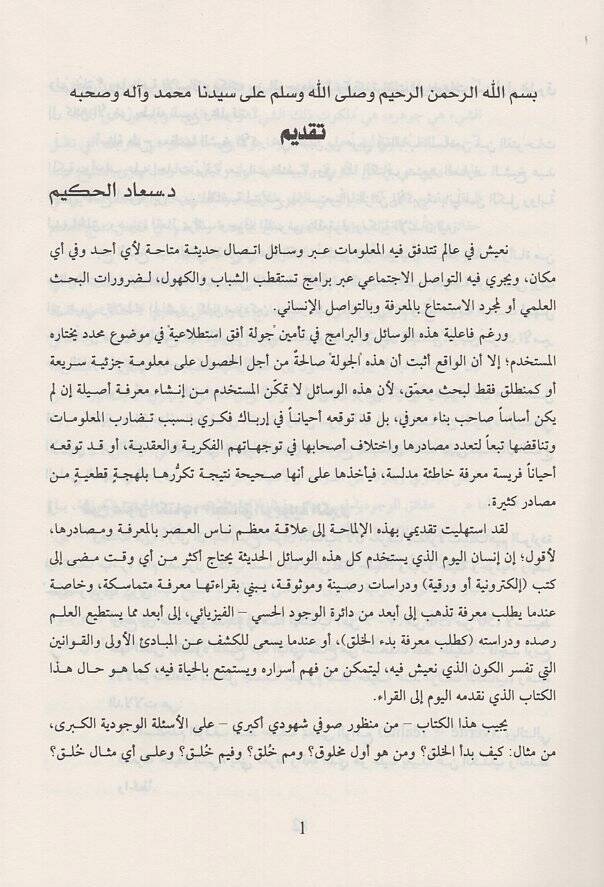 بسم الله الرحمن الرحيم وصلى الله وسلم على سيدنا محمد وآله وصحبه
تقديم
د.سعاد الحكيم
نعيش في عالم تتدفق فيه المعلومات عبر وسائل اتصال حديثة متاحة لأي أحد وفي أي
مكان، ويجري فيه التواصل الاجتماعي عبر برامج تستقطب الشباب والكهول، لضرورات البحث
العلمي أو لمجرد الاستمتاع بالمعرفة وبالتواصل الإنساني.
ورغم فاعلية هذه الوسائل والبرامج في تأمين "جولة أفق استطلاعية" في موضوع محدد يختاره
المستخدم؛ إلا أن الواقع أثبت أن هذه "الجولة" صالحةٌ من أجل الحصول على معلومة جزئية سريعة
أو كمنطلق فقط لبحث معمّق، لأن هذه الوسائل لا تمكّن المستخدم من إنشاء معرفة أصيلة إن لم
يكن أساساً صاحب بناء معرفي، بل قد توقعه أحياناً في إرباك فكري بسبب تضارب المعلومات
وتناقضها تبعاً لتعدد مصادرها واختلاف أصحابها في توجهاتهم الفكرية والعقدية، أو قد توقعه
أحياناً فريسة معرفة خاطئة مدلسة، فيأخذها على أنها صحيحة نتيجة تكرُّرها بلهجةٍ قطعيةٍ من
مصادر كثيرة.
لقد استهليت تقديمي بهذه الإلماحة إلى علاقة معظم ناس العصر بالمعرفة ومصادرها،
لأقول؛ إن إنسان اليوم الذي يستخدم كل هذه الوسائل الحديثة يحتاج أكثر من أي وقت مضى إلى
كتب (إلكترونية أو ورقية) ودراسات رصينة وموثوقة، يبني بقراءتها معرفة متماسكة، وخاصة
عندما يطلب معرفة تذهب إلى أبعد من دائرة الوجود الحسي – الفيزيائي، إلى أبعد مما يستطيع العلم
رصده ودراسته (كطلب معرفة بدء الخلق)، أو عندما يسعى للكشف عن المبادئ الأولى والقوانين
التي تفسر الكون الذي نعيش فيه، ليتمكن من فهم أسراره ويستمتع بالحياة فيه، كما هو حال هذا
الكتاب الذي نقدمه اليوم إلى القراء.
يجيب هذا الكتاب – من منظور صوفي شهودي أكبري – على الأسئلة الوجودية الكبرى،
من مثال: كيف بدأ الخلق؟ ومن هو أول مخلوق؟ ومم خُلق؟ وفيم خُلق؟ وعلى أي مثال خُلق؟
1